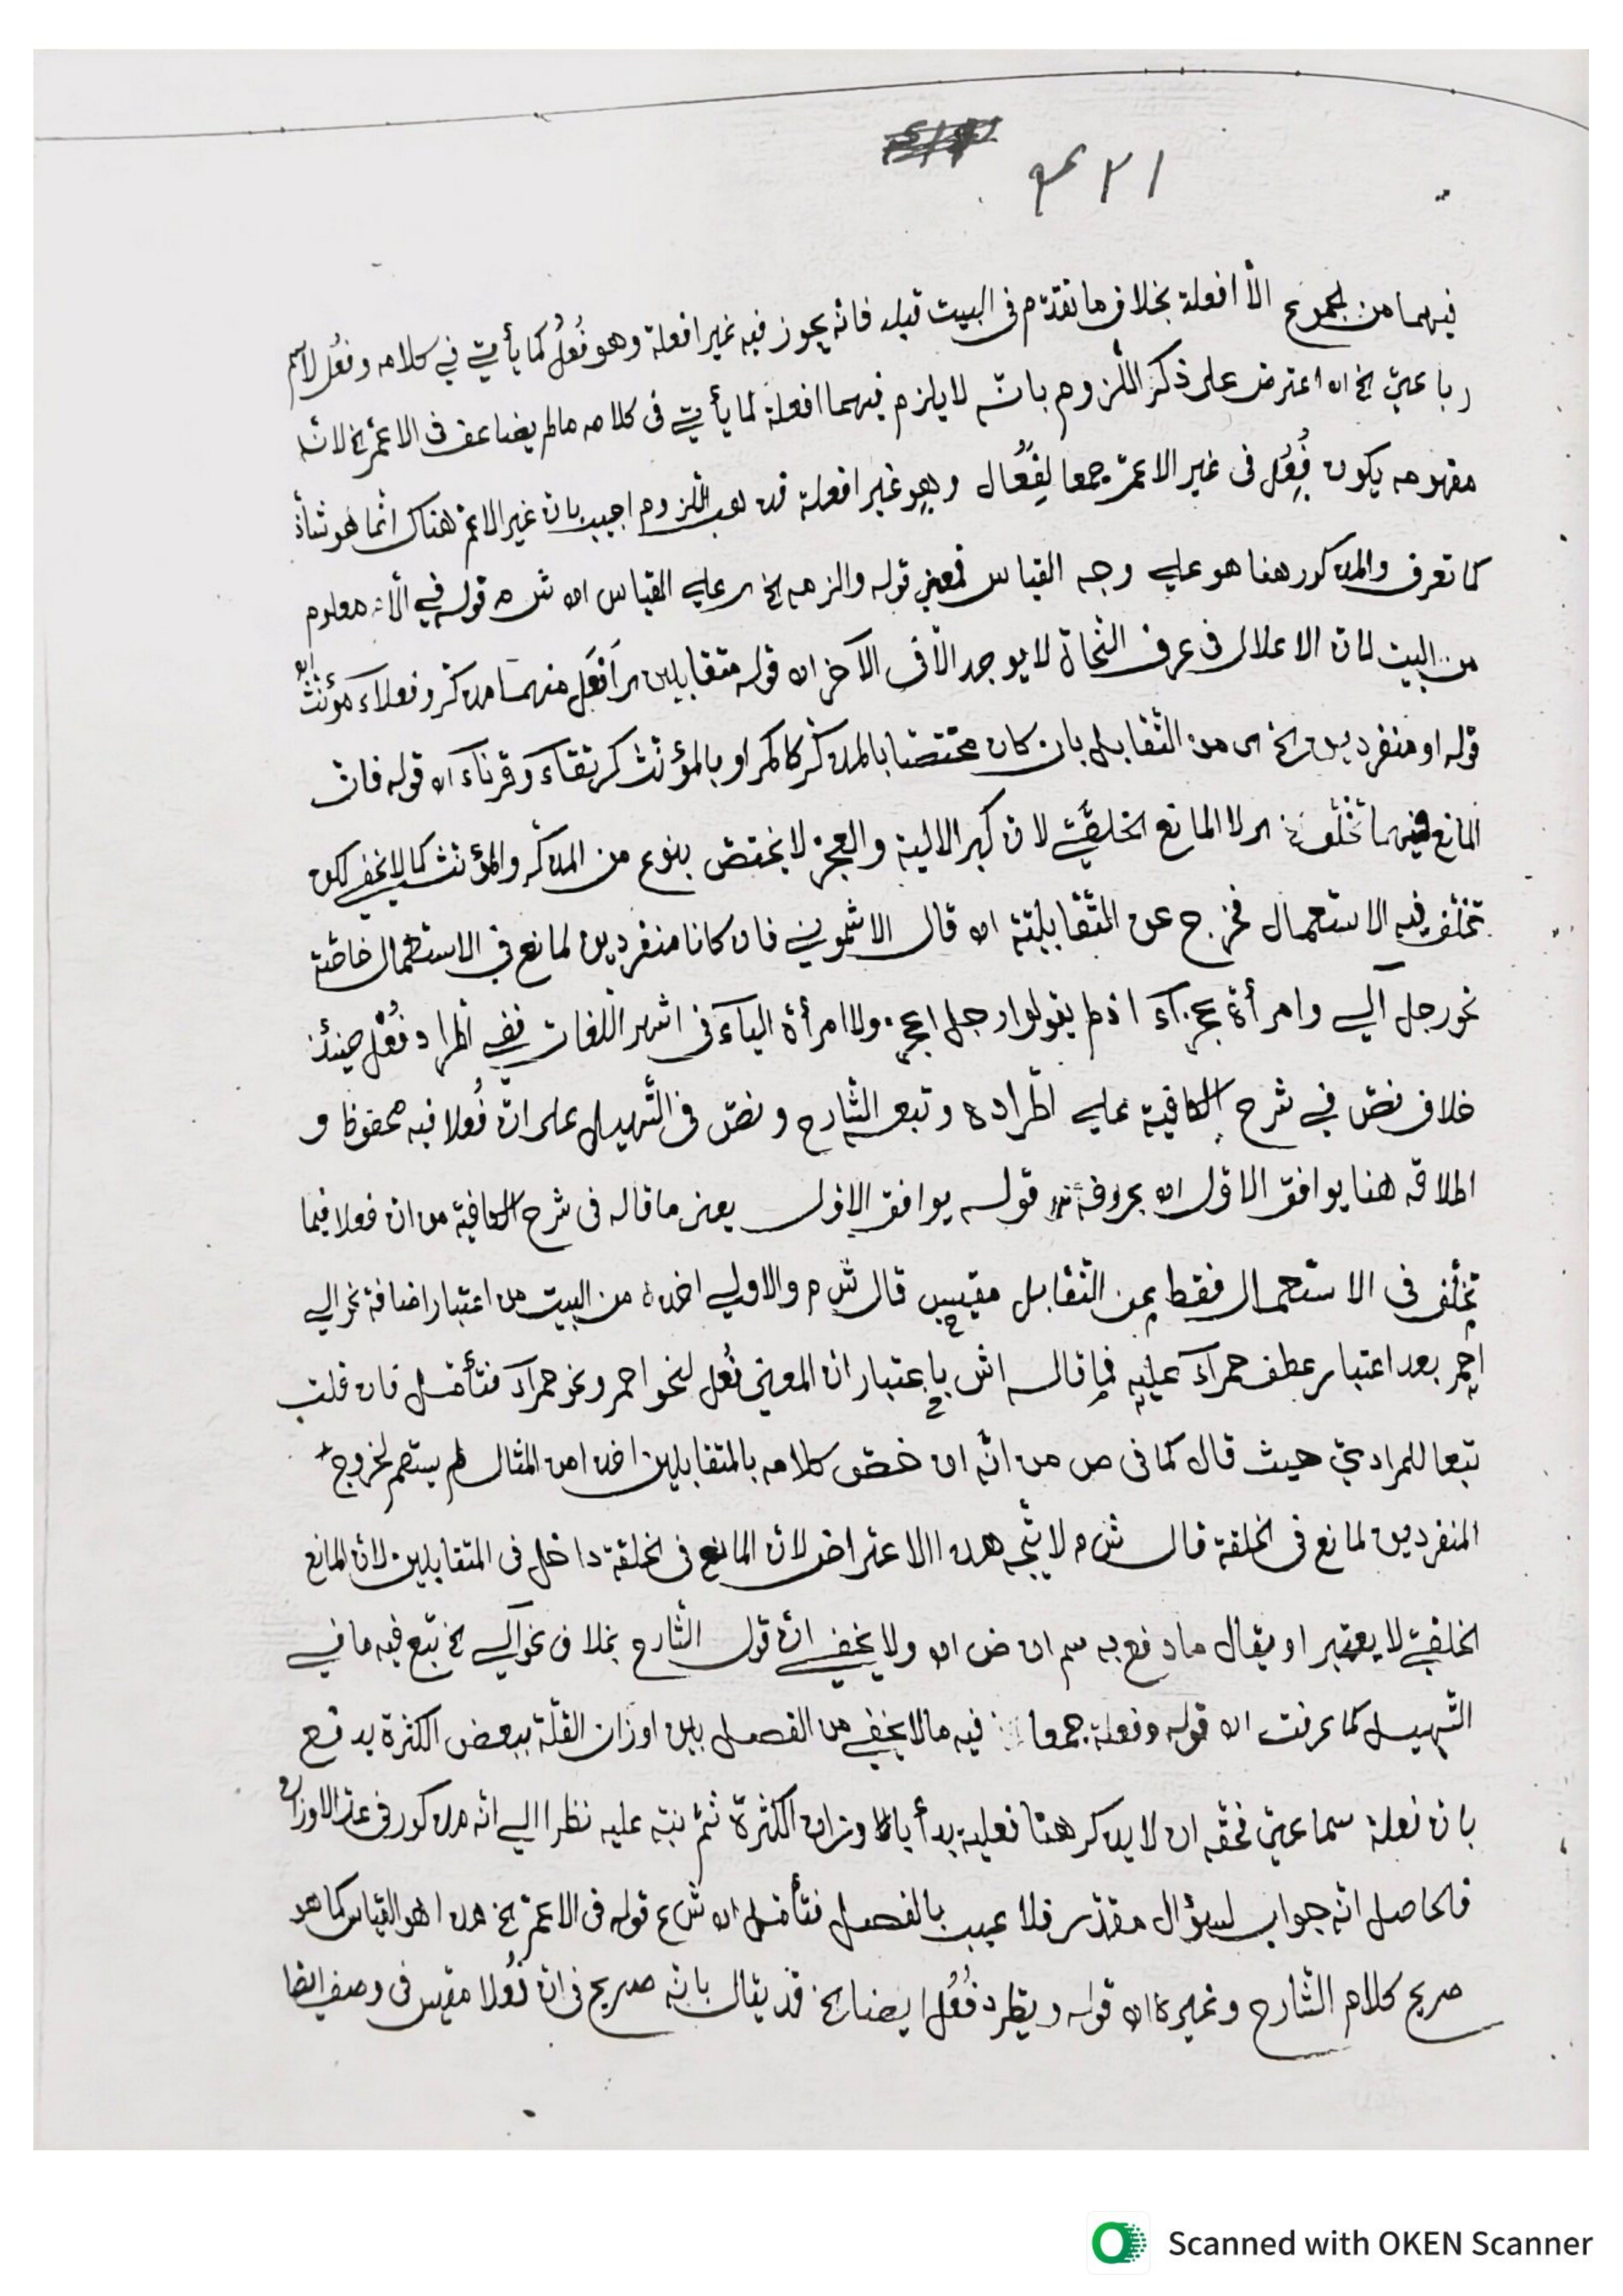 ١٢٣
فيهما من الجموع الّا افعلة بخلاف ما تقدّم فى البيت قبله فانّه يجوز فيه غير افعلة وهو فُعُلٌ كما يأتي في كلامه وفُعُل لاسم
رباعيّ الخ اه اعترض على ذكر اللّزوم بانّه لا يلزم فيهما افعلة لما يأتي فى كلامه ما لم يضاعف فى الاعمّ الخ لانّه
مفهومه يكون فُعُل فى غير الاعمّ جمعا لفِعَال وهو غير افعلة فذهب اللّزوم اجيب بان غير الاعمّ هناك انّما هو شاذّ
كما تعرف والمذكور هنا هو علي وجه القياس فمعنى قوله والزمه الخ اى علي القياس اه ش م قوله في الآن معلوم
من البيت لان الاعلال فى عرف النّحاة لا يوجد الّا فى الآخر اه قوله متقابلين اى اَفعَل منهما مذكّر وفعلاء مؤنّث
قوله او منفردين الخ اى من التّقابل بان كان مختصّا بالمذكّر كاكمر او بالمؤنّث كرتقاء وقرناء اه قوله فان
المانع فيهما تخلّف اى لا المانع الخلقيّ لان كبر الالية والعجز لا يختصّ بنوع من المذكّر والمؤنّث كما لا يخفى لكن
تخلّف فيه الاستعمال فخرج عن المتقابلة اه قال الاشموني فان كانا منفردين لمانع في الاستعمال خاصّة
نحو رجل آلي وامرأة عجزآء اذ لم يقولوا رجل اعجز ولا امرأة اليآء فى اشهر اللّغات ففي اطّراد فُعْل حينئذ
خلاف نصّ في شرح الكافية علي اطّراده وتبعه الشّارح ونصّ فى التّسهيل على انّ فُعلا فيه محفوظ و
اطلاقه هنا يوافق الاوّل اه بحروفه قوله يوافق الاوّل يعنى ما قاله فى شرح الكافية من ان فعلا فيما
تخلّف فى الاستعمال فقط عن التّقابل مقيس قال ش م والاولي اخذه من البيت من اعتبار اضافة نحو الي
احمر بعد اعتبار عطف حمرآء عليه فما قاله اش باعتبار ان المعني فُعل لنحو احمر ونحو حمرآء فتأمّل فان قلت
تبعا للمراديّ حيث قال كما فى ص من انّه ان خصّ كلامه بالمتقابلين اخذا من المثال لم يستعم لخروج
المنفردين لمانع فى الخلقة قال ش م لا يتّجه هذا الاعتراض لانّ المانع فى الخلقة داخل فى المتقابلين لانّ المانع
الخلقيّ لا يعتبر او يقال ما دفع به سم ان ض اه ولا يخفي انّ قول الشّارح بخلاف نحو آلي الخ تبع فيه ما في
التّسهيل كما عرفت اه قوله وفعلة جمعا فيه ما لا يخفي من الفصل بين اوزان القلّة ببعض الكثرة يدفع
بان فعلة سماعيّ فحقّه ان لا يذكر هنا فعليه بدأ باوزان الكثرة ثمّ نبّه عليه نظرا الي انّه مذكور فى عدّ الاوزان
فالحاصل انّه جواب لسؤال مقدّر فلا عيب بالفصل فتأمّل اه ش ع قوله فى الاعمّ الخ هذا هو القياس كما هو
صريح كلام الشّارح وغيره اه قوله ويطّرد فُعُل ايضا الخ قد يقال بانّه صريح فى انّ فُعُلا مقيس فى وصف ايضا
Scanned with OKEN Scanner